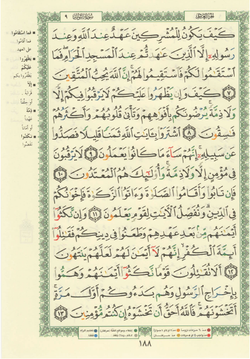 ٩
كَيْفَ يَكُونُ لِلْمُشْرِكِينَ عَهْدٌ عِندَ اللَّهِ وَعِندَ
رَسُولِهِ إِلَّا الَّذِينَ عَٰهَدتُّمْ عِندَ الْمَسْجِدِ الْحَرَامِ فَمَا
اسْتَقَٰمُوا لَكُمْ فَاسْتَقِيمُوا لَهُمْ إِنَّ اللَّهَ يُحِبُّ الْمُتَّقِينَ
٧ كَيْفَ وَإِن يَظْهَرُوا عَلَيْكُمْ لَا يَرْقُبُوا فِيكُمْ إِلًّا
وَلَا ذِمَّةً يُرْضُونَكُم بِأَفْوَٰهِهِمْ وَتَأْبَىٰ قُلُوبُهُمْ وَأَكْثَرُهُمْ
فَٰسِقُونَ ٨ اشْتَرَوْا بِـَٔايَٰتِ اللَّهِ ثَمَنًا قَلِيلًا فَصَدُّوا
عَن سَبِيلِهِ إِنَّهُمْ سَآءَ مَا كَانُوا يَعْمَلُونَ ٩ لَا يَرْقُبُونَ
فِي مُؤْمِنٍ إِلًّا وَلَا ذِمَّةً وَأُولَٰٓئِكَ هُمُ الْمُعْتَدُونَ ١٠
فَإِن تَابُوا وَأَقَامُوا الصَّلَوٰةَ وَءَاتَوُا الزَّكَوٰةَ فَإِخْوَٰنُكُمْ
فِي الدِّينِ وَنُفَصِّلُ الْءَايَٰتِ لِقَوْمٍ يَعْلَمُونَ ١١ وَإِن نَّكَثُوا
أَيْمَٰنَهُم مِّن بَعْدِ عَهْدِهِمْ وَطَعَنُوا فِي دِينِكُمْ فَقَٰتِلُوا
أَئِمَّةَ الْكُفْرِ إِنَّهُمْ لَا أَيْمَٰنَ لَهُمْ لَعَلَّهُمْ يَنتَهُونَ
١٢ أَلَا تُقَٰتِلُونَ قَوْمًا نَّكَثُوا أَيْمَٰنَهُمْ وَهَمُّوا
بِإِخْرَاجِ الرَّسُولِ وَهُم بَدَءُوكُمْ أَوَّلَ مَرَّةٍ
أَتَخْشَوْنَهُمْ فَاللَّهُ أَحَقُّ أَن تَخْشَوْهُ إِن كُنتُم مُّؤْمِنِينَ ١٣
١٨٨